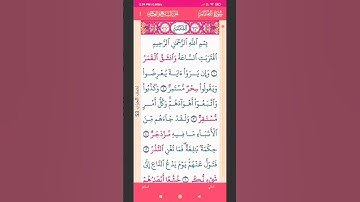 بِسْمِ اللَّهِ الرَّحْمَٰنِ الرَّحِيمِ
اقْتَرَبَتِ السَّاعَةُ وَانشَقَّ الْقَمَرُ
١ وَإِن يَرَوْا ءَايَةً يُعْرِضُوا
وَيَقُولُوا سِحْرٌ مُّسْتَمِرٌّ ٢ وَكَذَّبُوا
وَاتَّبَعُوا أَهْوَاءَهُمْ ۚ وَكُلُّ أَمْرٍ
مُّسْتَقِرٌّ ٣ وَلَقَدْ جَاءَهُم مِّنَ
الْأَنبَاءِ مَا فِيهِ مُزْدَجَرٌ ٤
حِكْمَةٌ بَالِغَةٌ ۖ فَمَا تُغْنِ النُّذُرُ ٥
فَتَوَلَّ عَنْهُمْ ۘ يَوْمَ يَدْعُ الدَّاعِ إِلَىٰ
شَيْءٍ نُّكُرٍ ٦ خُشَّعًا أَبْصَارُهُمْ